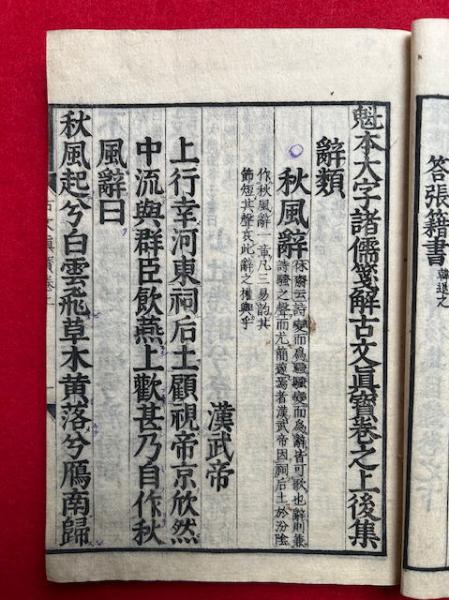 答張籍書 韓退之
魁本大字諸儒箋解古文眞寶卷之上後集
辭類
秋風辭
休齋云詩變而爲騷騷變而爲辭皆可歌也辭則兼
詩騷之聲而尤簡邃焉者漢武帝因祠后土於汾陰
作秋風辭一章凡三易韵其
節短其聲哀此辭之權輿乎
漢武帝
上行幸河東祠后土顧視帝京欣然
中流與群臣飲燕上歡甚乃自作秋
風辭曰
秋風起兮白雲飛草木黄落兮鴈南歸
古文眞寶卷